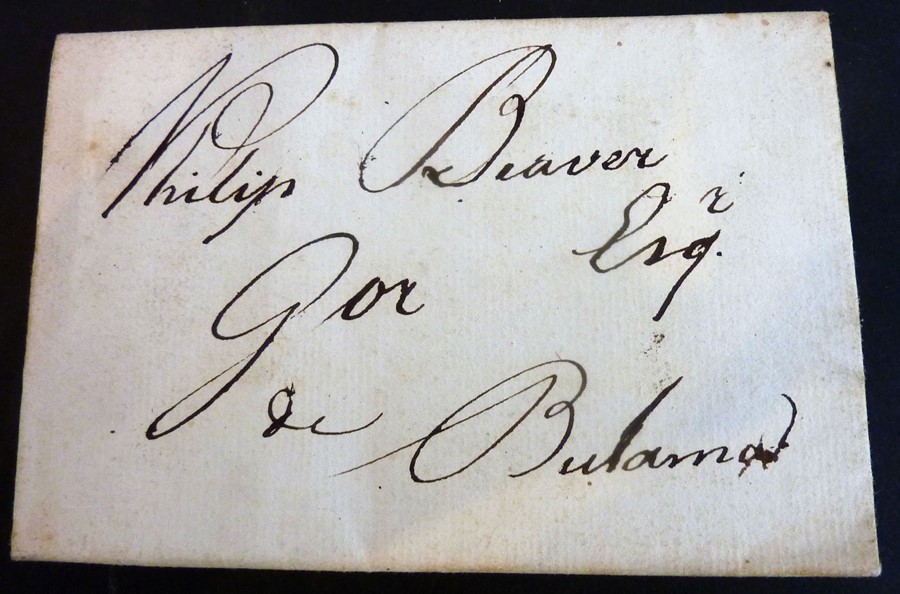 Philip Beaver
Esqr.
Gor
&c Bulama